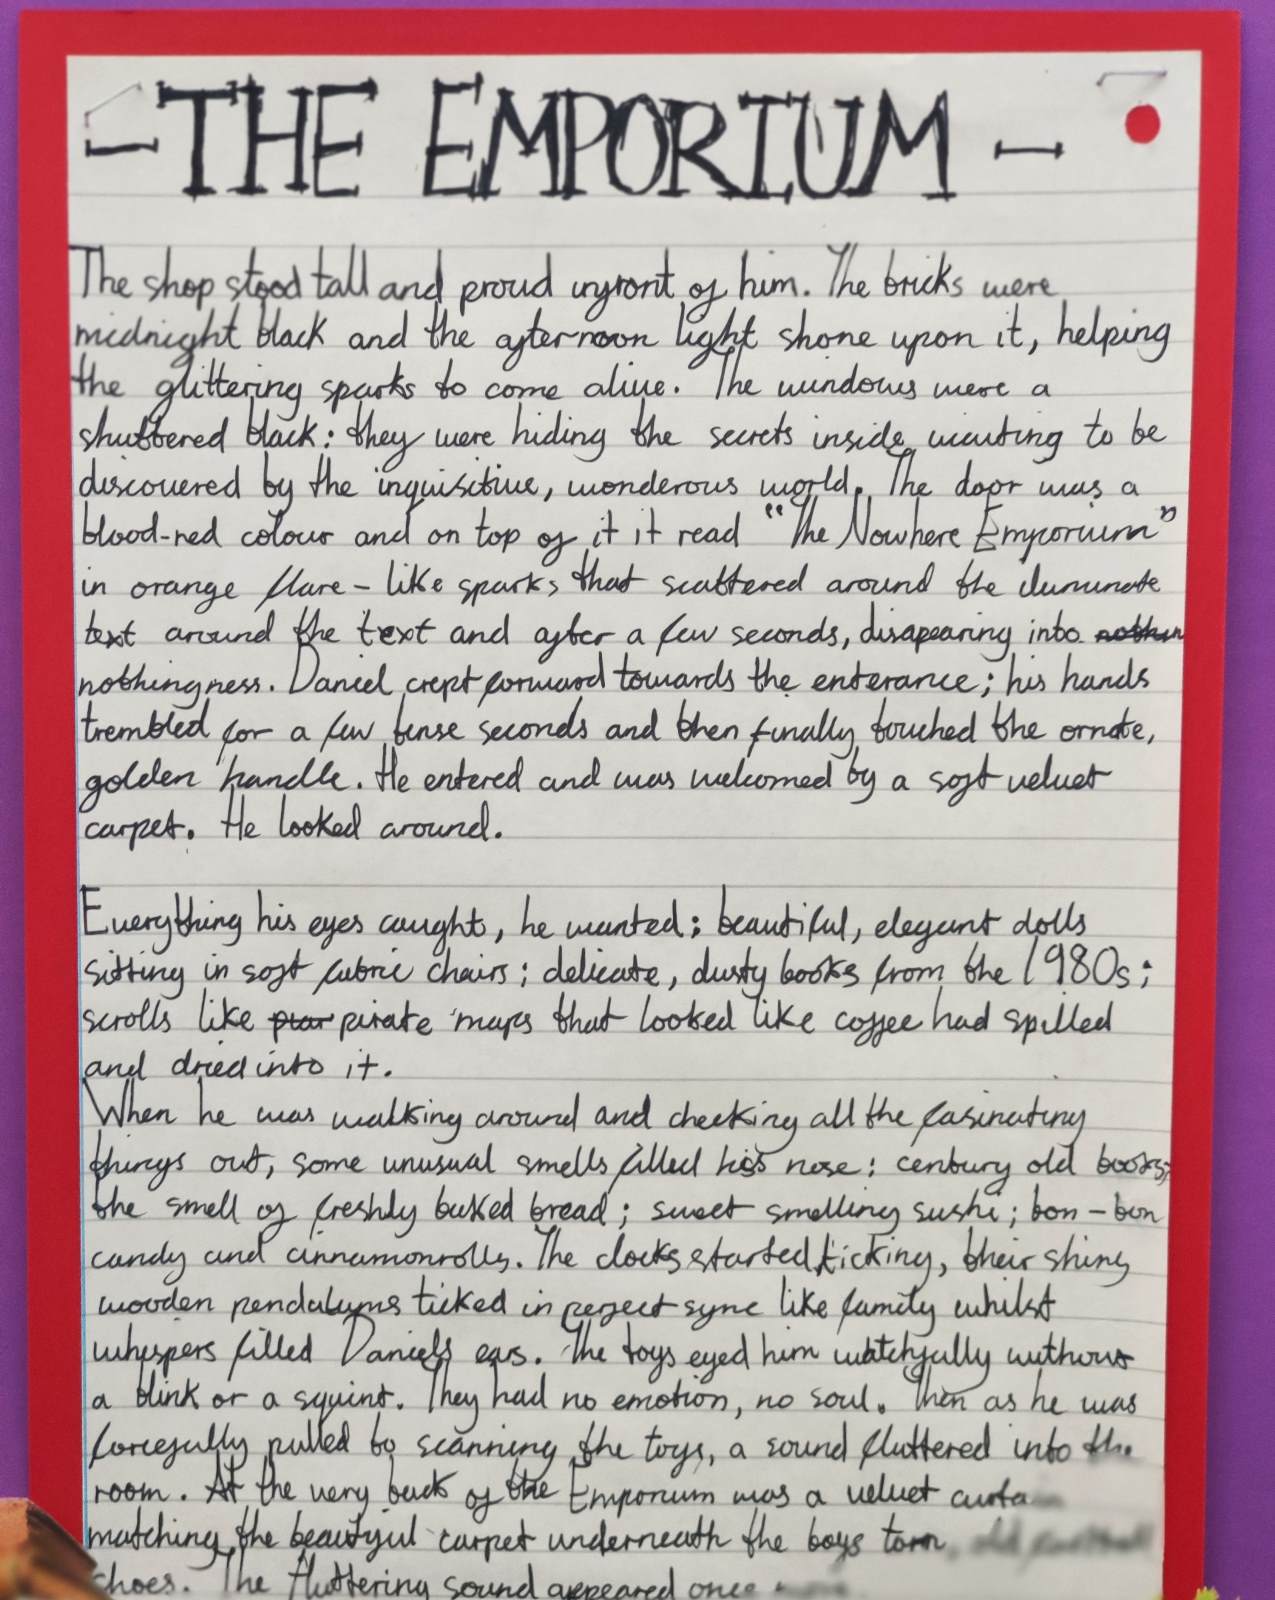 - THE EMPORIUM -
The shop stood tall and proud infront of him. The bricks were
midnight black and the afternoon light shone upon it, helping
the glittering sparks to come alive. The windows were a
shuttered black: they were hiding the secrets inside, waiting to be
discovered by the inquisitive, wonderous world. The door was a
blood-red colour and on top of it it read "The Nowhere Emporium"
in orange flare-like sparks that scattered around the iluminate
text around the text and after a few seconds, disapearing into
nothingness. Daniel crept forward towards the enterance; his hands
trembled for a few tense seconds and then finally touched the ornate,
golden handle. He entered and was welcomed by a soft velvet
carpet. He looked around.
Everything his eyes caught, he wanted: beautiful, elegant dolls
sitting in soft fabric chairs; delicate, dusty books from the 1980s;
scrolls like pirate maps that looked like coffee had spilled
and dried into it.
When he was walking around and checking all the fasinating
things out, some unusual smells filled his nose: century old books;
the smell of freshly baked bread; sweet smelling sushi; bon-bon
candy and cinnamonrolls. The clocks started ticking, their shiny
wooden pendalums ticked in perfect sync like family whilst
whispers filled Daniels ears. The toys eyed him watchfully without
a blink or a squint. They had no emotion, no soul. Then as he was
forcefully pulled to scanning the toys, a sound fluttered into the
room. At the very back of the Emporium was a velvet curtain
matching the beautiful carpet underneath the boys torn, old
shoes. The fluttering sound appeared once